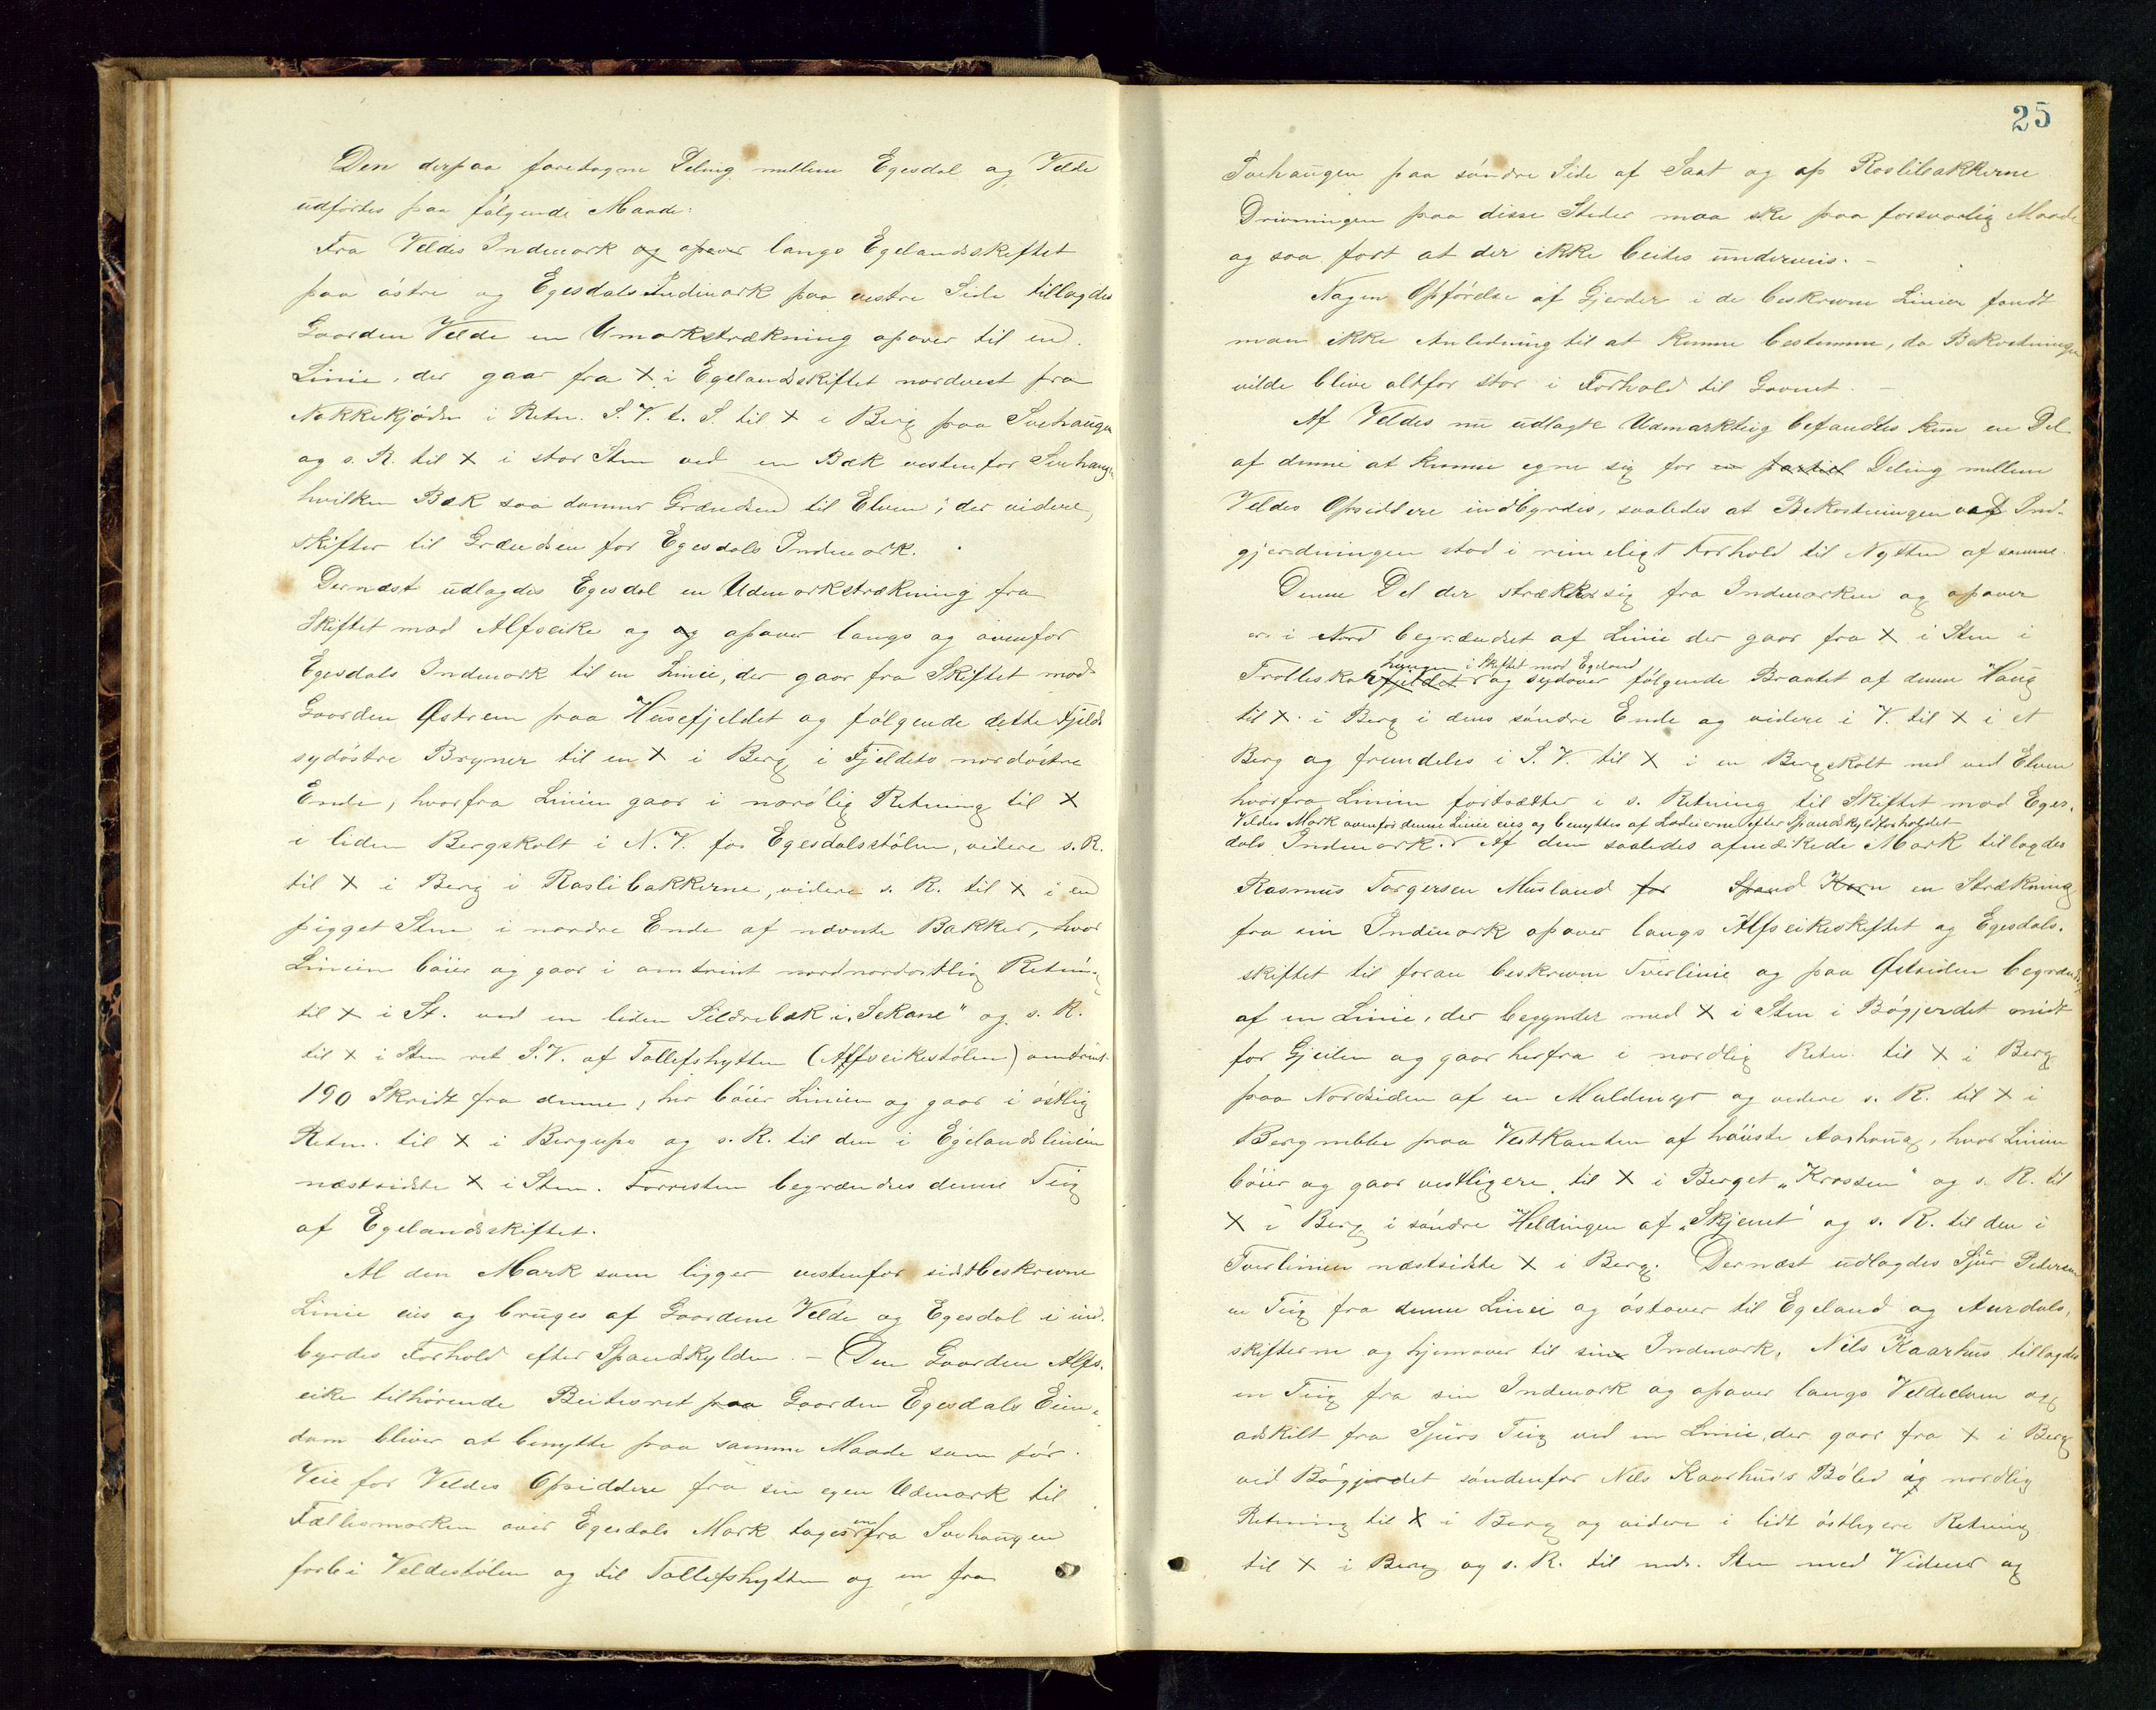 Den derpaa foretagne Deling mellem Egesdal og Velde
udførtes paa følgende Maade:
Fra Veldes Indmark og opover langs Egelandsskiftet
paa østre og Egesdals Indmark paa vestre Side tillagdes
Gaarden Velde en Umarkstrækning opover til en
Linie, der gaar fra X i Egelandsskiftet nordvest fra
Nakkekjødn i Retn. S. V. t. S. til X i Berg paa Svehaugen
og s. R. til X i stor Sten ved en Bæk vestenfor Svehaugen
hvilken Bæk saa danner Grændsen til Elven; der videre
skifter til Grændsen for Egesdals Indmark.
Dernæst udlagdes Egesdal en Udmarkstrækning fra
Skiftet mod Alfseike og og opover langs og ovenfor
Egesdals Indmark til en Linie, der gaar fra Skiftet mod
Gaarden Østrem paa Husefjeldet og følgende dette Fjelds
sydøstre Bryner til en X i Berg i Fjeldets nordøstre
Ende, hvorfra Linien gaar i nordlig Retning til X
i liden Bergskolt i N. V. for Egesdalsstølen, videre s. R.
til X i Berg i Raslibakkerne, videre s. R. til X i en
pigget Sten i nordre Ende af nævnte Bakker, hvor
Linien bøier og gaar i omtrint nordnordostlig Retning
til X i St. ved en liden Sildrebæk i "Sekane" og s. R.
til X i Sten ret S. V. af Tollefshytten (Alfseikestølen) omtrint
190 Skridt fra denne, her bøier Linien og gaar i østlig
Retn. til X i Bergups og s. R. til den i Egelandslinien
næstsidste X i Sten. Forresten begrændses denne Teig
af Egelandsskiftet.
Al den Mark som ligger vestenfor sidstbeskrevne
Linie eies og bruges af Gaardene Velde og Egesdal i ind-
byrdes Forhold efter Spandskylden. – Den Gaarden Alfs-
eike tilhørende Beitesret paa Gaarden Egesdals Eien-
dom bliver at benytte paa samme Maade som før.
Veie for Veldes Opsiddere fra sin egen Udmark til
Fællesmarken over Egesdals Mark tages en fra Svehaugen
forbi Veldestølen og til Tollefshytten og en fra
25
Svehaugen paa søndre Side af Saat og op Raslibakkerne
Drivningen paa disse Steder maa ske paa forsvarlig Maade
og saa fort at der ikke beites underveis. –
Nogen Opførelse af Gjerder i de beskrevne Linier fandt
man ikke Anledning til at kunne bestemme, da Bekostningen
vilde blive altfor stor i Forhold til Gavnet. –
Af Veldes nu udlagte Udmarkteig befandtes kun en Del
af denne at kunne egne sig for en partiel Deling mellem
Veldes Opsiddere indbyrdes, saaledes at Bekostningen ved Ind-
gjerdningen stod i rimeligt Forhold til Nytten af samme.
Denne Del der strækker sig fra Indmarken og opover
er i Nord begrændset af Linie der gaar fra X i Sten i
haugen i Skiftet mod Egeland
Trolleskarfjeldet og sydover følgende Brautet af denne Haug
til X i Berg i dens søndre Ende og videre i V. til X i et
Berg og fremdeles i S. V. til X i en Bergskolt ned ved Elven
hvorfra Linien fortsætter i s. Retning til Skiftet mod Eges-
Veldes Mark ovenfor denne Linie eies og benyttes af Lodeierne efter Spandskyldforholdet
dals Indmark. Af den saaledes afmærkede Mark tillagdes
Rasmus Torgersen Musland for Spand Korn en Strækning
fra sin Indmark opover langs Alfseikeskiftet og Egesdals-
skiftet til foran beskrevne Tverlinie og paa Østsiden begrændses
af en Linie, der begynder med X i Sten i Bøgjerdet midt
for Gjeilen og gaar herfra i nordlig Retn. til X i Berg
paa Nordsiden af en Muldmyr og videre s. R. til X i
Bergnibbe paa Vestkanten af høieste Aashaug, hvor Linien
bøier og gaar vestligere til X i Berget "Krossen" og s. R. til
X i Berg i søndre Heldingen af "Skjenet" og s. R. til den i
Tverlinien næstsidste X i Berg. Dernæst udlagdes Sjur Pedersen
en Teig fra denne Linie og østover til Egeland og Aurdals-
skifterne og hjemover til sin Indmark. Nils Kaarhus tillagdes
en Teig fra sin Indmark og opover langs Veldeelven og
adskilt fra Sjurs Teig ved en Linie, der gaar fra X i Berg
ved Bøgjerdet søndenfor Nils Kaarhus's Bøled og nordlig
Retning til X i Berg og videre i lidt østligere Retning
til X i Berg og s. R. til neds. Sten med Vidner og